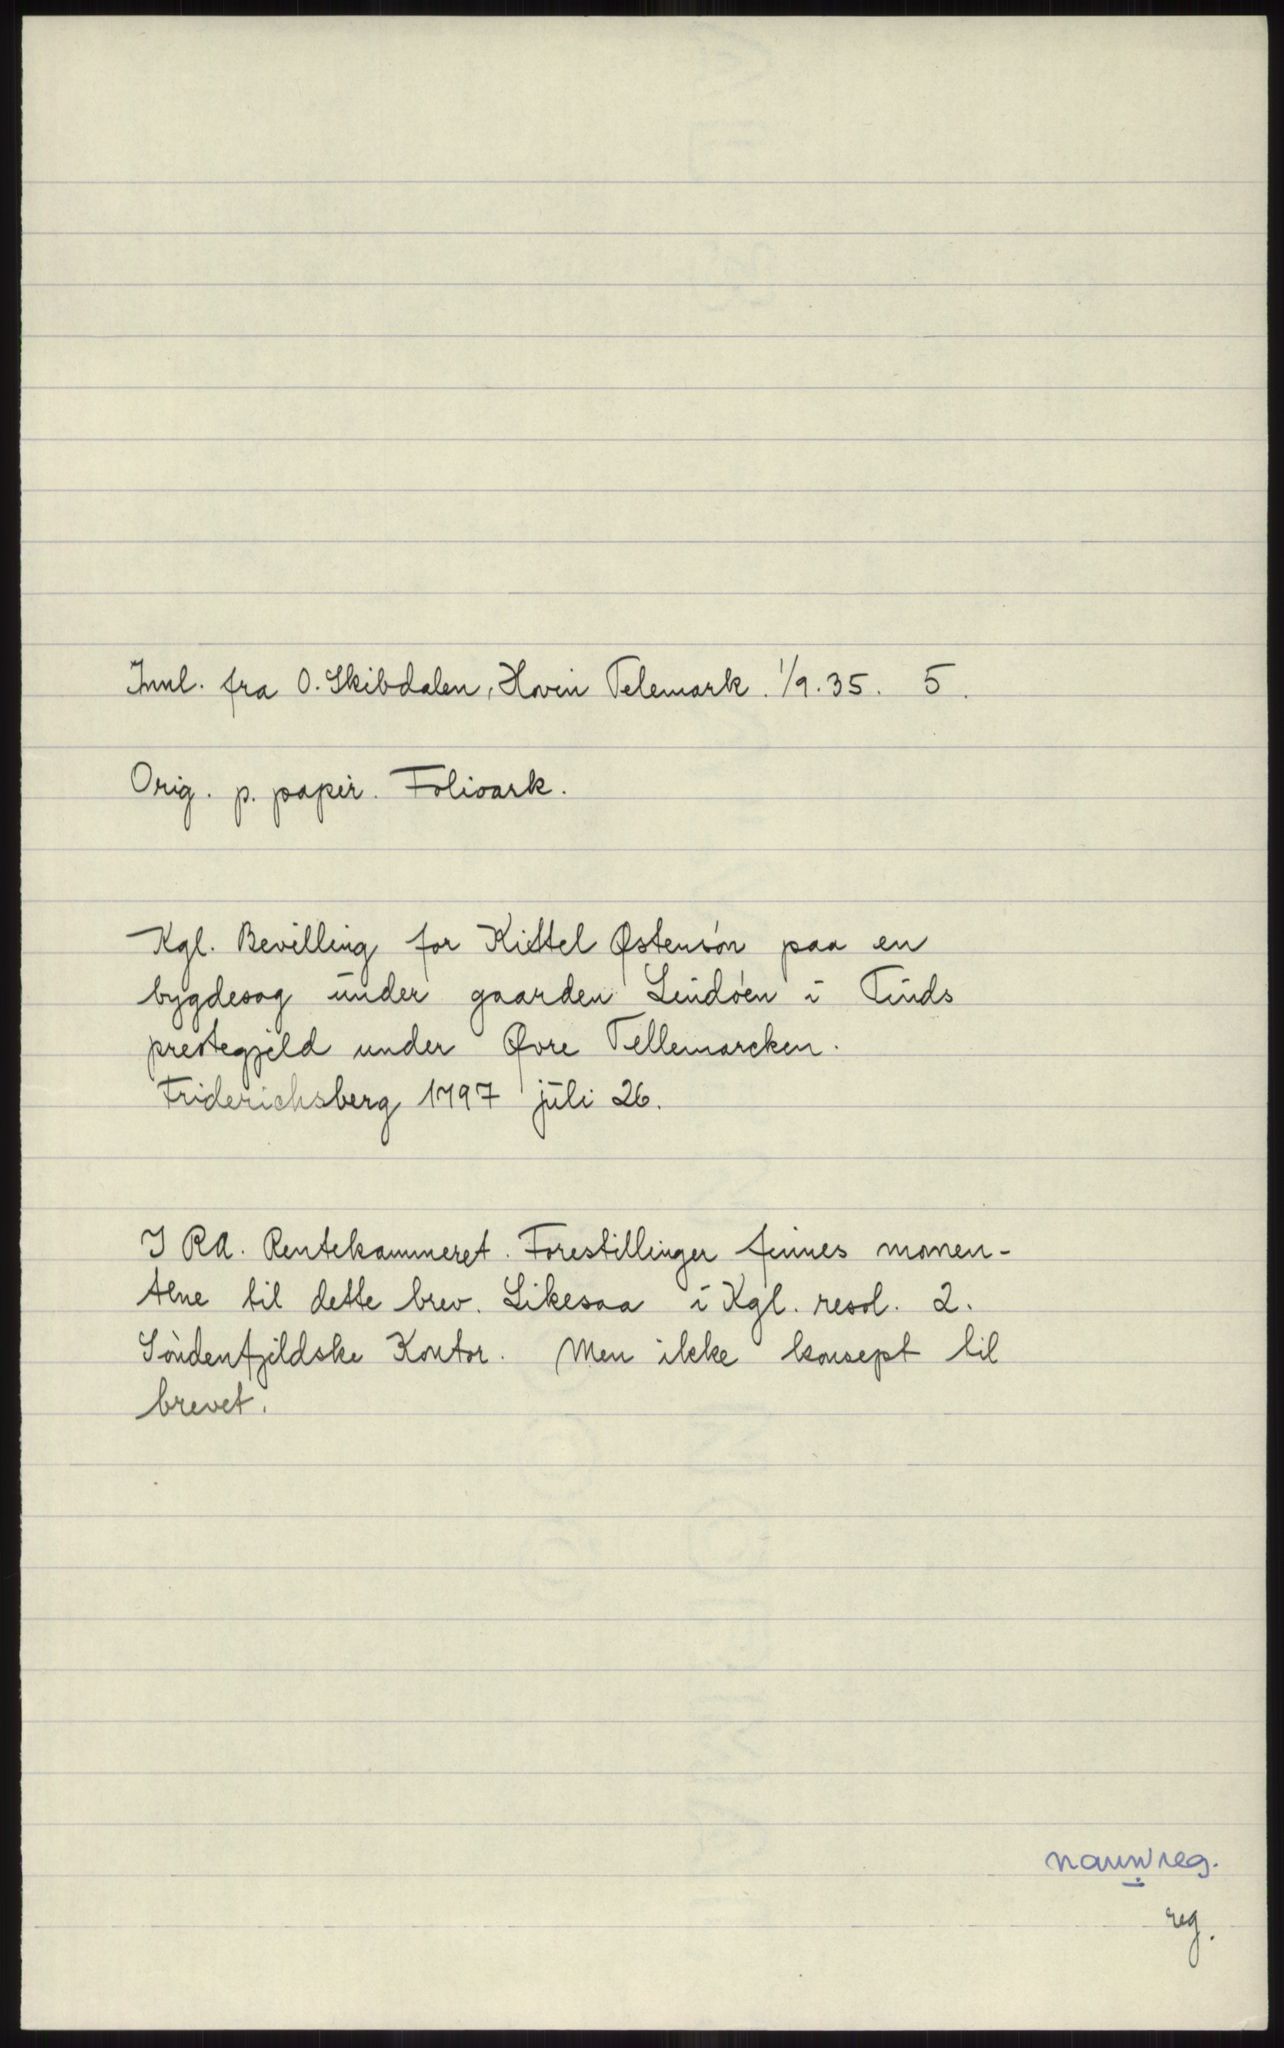 Innl. fra O. Skibdalen, Hovin Telemark. 1/9.35. 5.
Orig. p. papir. Folioark.
Kgl. Bevilling for Kittel Østensøn paa en
bygdesag under gaarden Lindøen i Tinds
prestegjeld under Øvre Tellemarcken.
Friderichsberg 1797 juli 26.
I RA. Rentekammeret. Forestillinger finnes momen-
tene til dette brev. Likesaa i Kgl. resol. 2.
Söndenfjeldske Kontor. Men ikke konsept til
brevet.
navnreg.
reg.